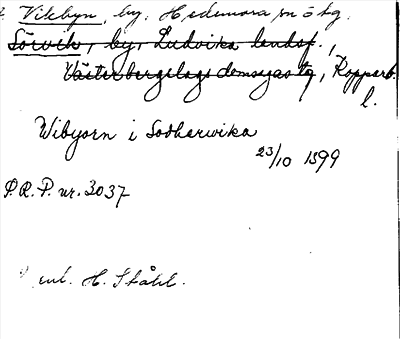 Vikbyn, by, Hedemora sn o tg.
Sörvik, by, Ludvika landsf.,
Västerbergslags domsagas tg, Kopparb.
l.
Wibyorn i Sodherwika
23/10 1399
S.R.P. nr. 3037
enl. H. Ståhl.